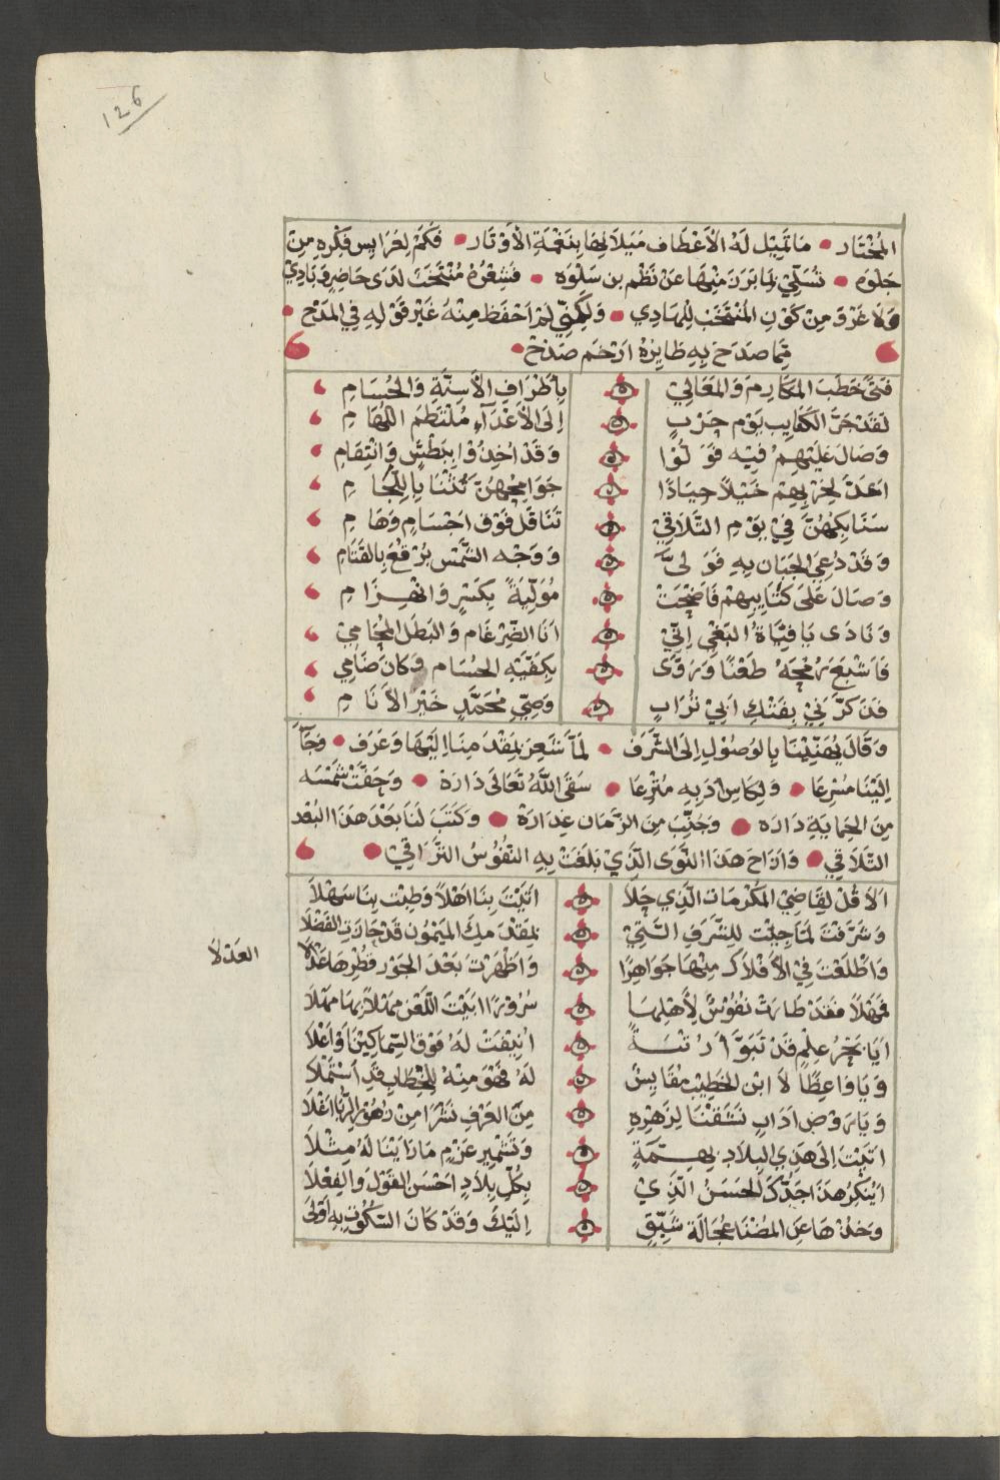 126
المُخْتَار • مَا تَمِيْل لَهُ الْأَعْطَاف مَيَلَانَهَا بِنَغْمَةِ الْأَوْتَار • فَكَمْ لِعَرَايِس فِكْرِهِ مِنْ
جَلْوَه • تُسَلِّيْ لَمَا بَرَنَ مِنْهَا عَنْ نَظْم بن سَلْوَه • فَشِعْرُهُ مُنْتَخَبْ لَدَى حَاضِرٍ وَبَادِيْ
وَلَا غَرْوَ مِنْ كَوْنِ المُنْتَخَبْ لِلْهَادِي • وَلَكِنِّي لَمْ اَحْفَظ مِنْهُ غَيْرَ قَوْلِهِ فِي المَدْح •
مِمَّا صَدَحَ بِهِ طَايِرُهُ اَرْخَم صَدْح •
فَتَىً خَطَبَ المَكَارِمَ وَالمَعَالِيْ بِأَطْرَافِ الْأَسِنَّةِ وَالْحُسَامِ
لَقَدْ جَرَّ الكَتَايِب يَوْم حَرْبٍ اِلَى الْأَعْدَآءِ مُلْتَطِمَ اللُّهَامِ
وَصَالَ عَلَيْهِمُ فِيْه فَوَلَّوْا وَقَدْ اُخِذُوْا بِبَطْشٍ وَانْتِقَامِ
اَعَدَّ لِحَرْبِهِمْ خَيْلاً جِيَادًا جَوَامِحُهُنَّ تُثْنَا بِاللِّجَامِ
سَنَابِكُهُنَّ فِيْ يَوْمِ التَّلَاقِيْ تَنَاقَل فَوْقَ اَجْسَامٍ وَهَامِ
وَقَدْ دُعِيَ الجَبَان بِهِ فَوَلَّىَّ وَوَجْه الشَّمْسِ بُرْقُعَ بِالقَتَامِ
وَصَالَ عَلَى كَتَايِبِهِمْ فَاَضْحَتْ مُوَلِّيَةً بِكَسْرٍ وَانْهِزَامِ
وَنَادَى يَا فِيَّاةُ البَغْيِ اِنِّيْ اَنَا الضِّرْغَام وَالبَطَل المُحَامِيْ
فَاَشْبَعَ رُمْحَهُ طَعْنًا وَرَوَّى بِكَفَّيْهِ الحُسَام وَكَانَ ضَامِي
فَذَكَّرَنِيْ بِفَتْكِ اَبِيْ تُرَابٍ وَصِيِّ مُحَمَّدٍ خَيْرَ الْأَنَامِ
وَقَالَ يُهَنِّيْنَا بِالوُصُوْلِ اِلَى الشَّرَف • لَمَّا شَعِرَ بِمَقْدَمِنَا اِلَيْهَا وَعَرَف • وَجَآءَ
اِلَيْنَا مُسْرِعَا • وَلِكَاسِ اَدَبِهِ مُتْرِعَا • سَقَى اللَّهُ تَعَالَى دَارَهْ • وَحَفَّتْ شَمْسَه
مِنَ الحِمَايَةِ دَارَه • وَجَنَّبَ مِنَ الزَّمَان غِدَارَهْ • وَكَتَبَ لَنَا بَعْدَ هَذَا البُعْد
التَّلَاقِي • وَاَزَاحَ هَذَا النَّوَى الَّذِيْ بَلَغَتْ بِهِ النُّفُوْسُ التَّرَاقِيْ •
اَلَا قُلْ لِقَاضِيْ المَكْرُمَات الَّذِي جَلَّا اَتَيْتَ بِنَا اَهْلاً وَطِبْتَ بِنَا سَهْلَا
وَشَرَّفْتَ لَمَّا جِيْتَ لِلشَّرَفِ الَّتِيْ بِمَقْدَمِكَ المَيْمُون قَدْ حَازَتِ الفَضْلَا
وَاَطْلَعْتَ فِيْ الْأَفْلَاكِ مِنْهَا جَوَاهِرًا وَاَظْهَرْتَ بَعْدَ الجَوْر قُطْرِهَا عَدْلَا
العَدْلَا
فَمَهْلَاً فَقَدْ طَارَتْ نُفُوْسٌ لِأَهْلِهَا سُرُوْرًا اَبَيْتَ اللَّعْنَ مَهْلاً بِهَا مَهْلَا
اَيَا بَحْرُ عِلْمٍ قَدْ تَبَوَّأَ رُتْبَةً اُنِيْفَتْ لَهُ فَوْقَ السِّمَاكِيْنَ اَوْ اَعْلَا
وَيَا وَاعِظًا لَا ابْن الخَطِيْب مُقَايِسٌ لَهُ فَهْوَ مِنْهُ لِلْخِطَابِ قَدِ اسْتَمْلَا
وَيَا رَوْضَ اَدَابٍ نَشَقْنَا لِزَهْرِهِ مِنَ العَرْفِ نَشْرًا مِنْ زُهُوْرِ الرُّبَا اَغْلَا
اَتَيْتَ اِلَى هَذِي البِلَادِ بِهِمَّةٍ وَتَشْمِيْرِ عَزْمٍ مَا رَاَيْنَا لَهُ مِثْلَا
اَيُنْكَرُ هَذَا جَدُّكَ الحَسَنُ الَّذِيْ بِكُلِّ بِلَادٍ اَحْسَنَ القَوْلَ وَالفِعْلَا
وَخُذْهَا عَنِ المُضْنَا عُجَالَة شَيِّقٍ اِلَيْكَ وَقَدْ كَانَ السُّكُوْت بِهِ اَوْلَى